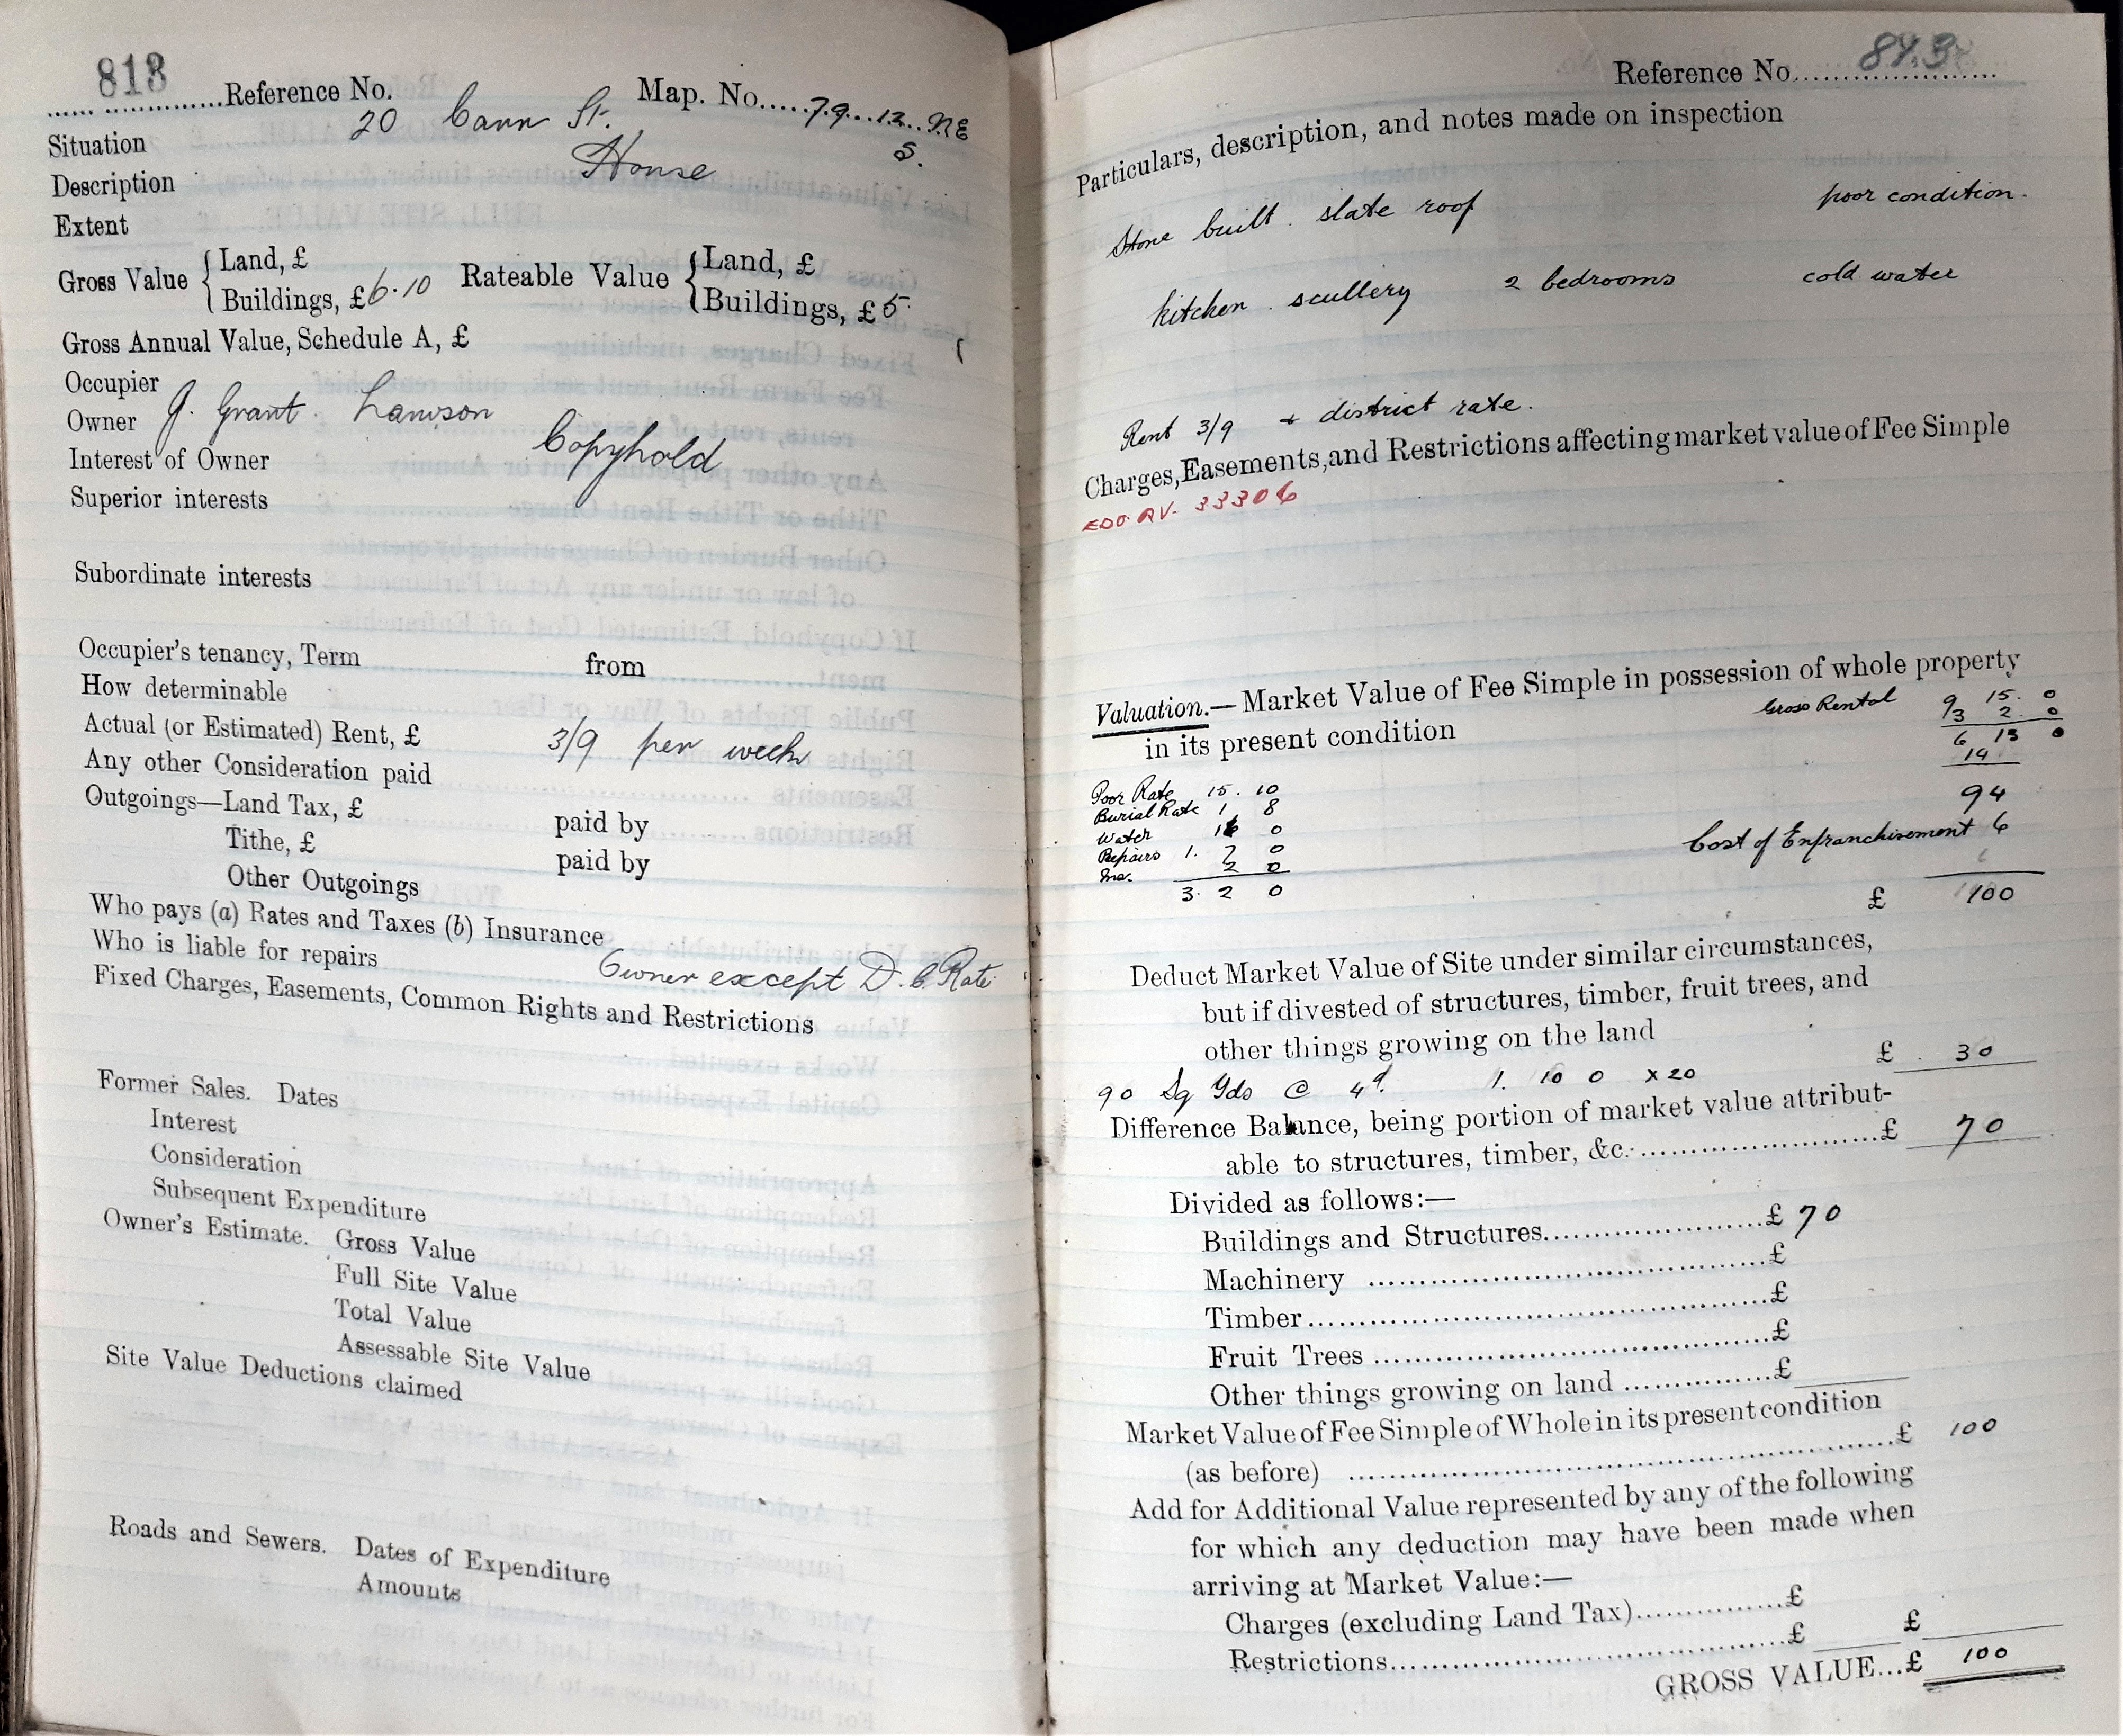 813
Reference No. Map. No. 79 12 NE
S.
Situation 20 Cann St.
Description House
Extent
Gross Value { Land, £ Rateable Value { Land, £
Buildings, £6.10 Buildings, £5
Gross Annual Value, Schedule A, £
Occupier
Owner J. Grant Lawson
Interest of Owner Copyhold
Superior interests
Subordinate interests
Occupier's tenancy, Term from
How determinable
Actual (or Estimated) Rent, £ 3/9 per week
Any other Consideration paid
Outgoings—Land Tax, £ paid by
Tithe, £ paid by
Other Outgoings
Who pays (a) Rates and Taxes (b) Insurance
Who is liable for repairs Owner except D. C. Rate
Fixed Charges, Easements, Common Rights and Restrictions
Former Sales. Dates
Interest
Consideration
Subsequent Expenditure
Owner's Estimate. Gross Value
Full Site Value
Total Value
Assessable Site Value
Site Value Deductions claimed
Roads and Sewers. Dates of Expenditure
Amounts
Reference No. 813
Particulars, description, and notes made on inspection
Stone built. slate roof poor condition.
kitchen. scullery 2 bedrooms cold water
Rent 3/9 + district rate.
Charges, Easements, and Restrictions affecting market value of Fee Simple
33306
Valuation.—Market Value of Fee Simple in possession of whole property
in its present condition
Gross Rental 9 15. 0
3 2. 0
6 13 0
14
Poor Rate 15. 10
Burial Rate 1 8
Water 16 0
Repairs 1. 7 0
Ins. 2 0
3. 2 0
94
Cost of Enfranchisement 6
£ 100
Deduct Market Value of Site under similar circumstances,
but if divested of structures, timber, fruit trees, and
other things growing on the land £ 30
90 Sq Yds @ 4d. 1. 10 0 x 20
Difference Balance, being portion of market value attribut-
able to structures, timber, &c. £ 70
Divided as follows:—
Buildings and Structures £ 70
Machinery £
Timber £
Fruit Trees £
Other things growing on land £
Market Value of Fee Simple of Whole in its present condition
(as before) £ 100
Add for Additional Value represented by any of the following
for which any deduction may have been made when
arriving at Market Value:—
Charges (excluding Land Tax) £
Restrictions £ £
GROSS VALUE...£ 100